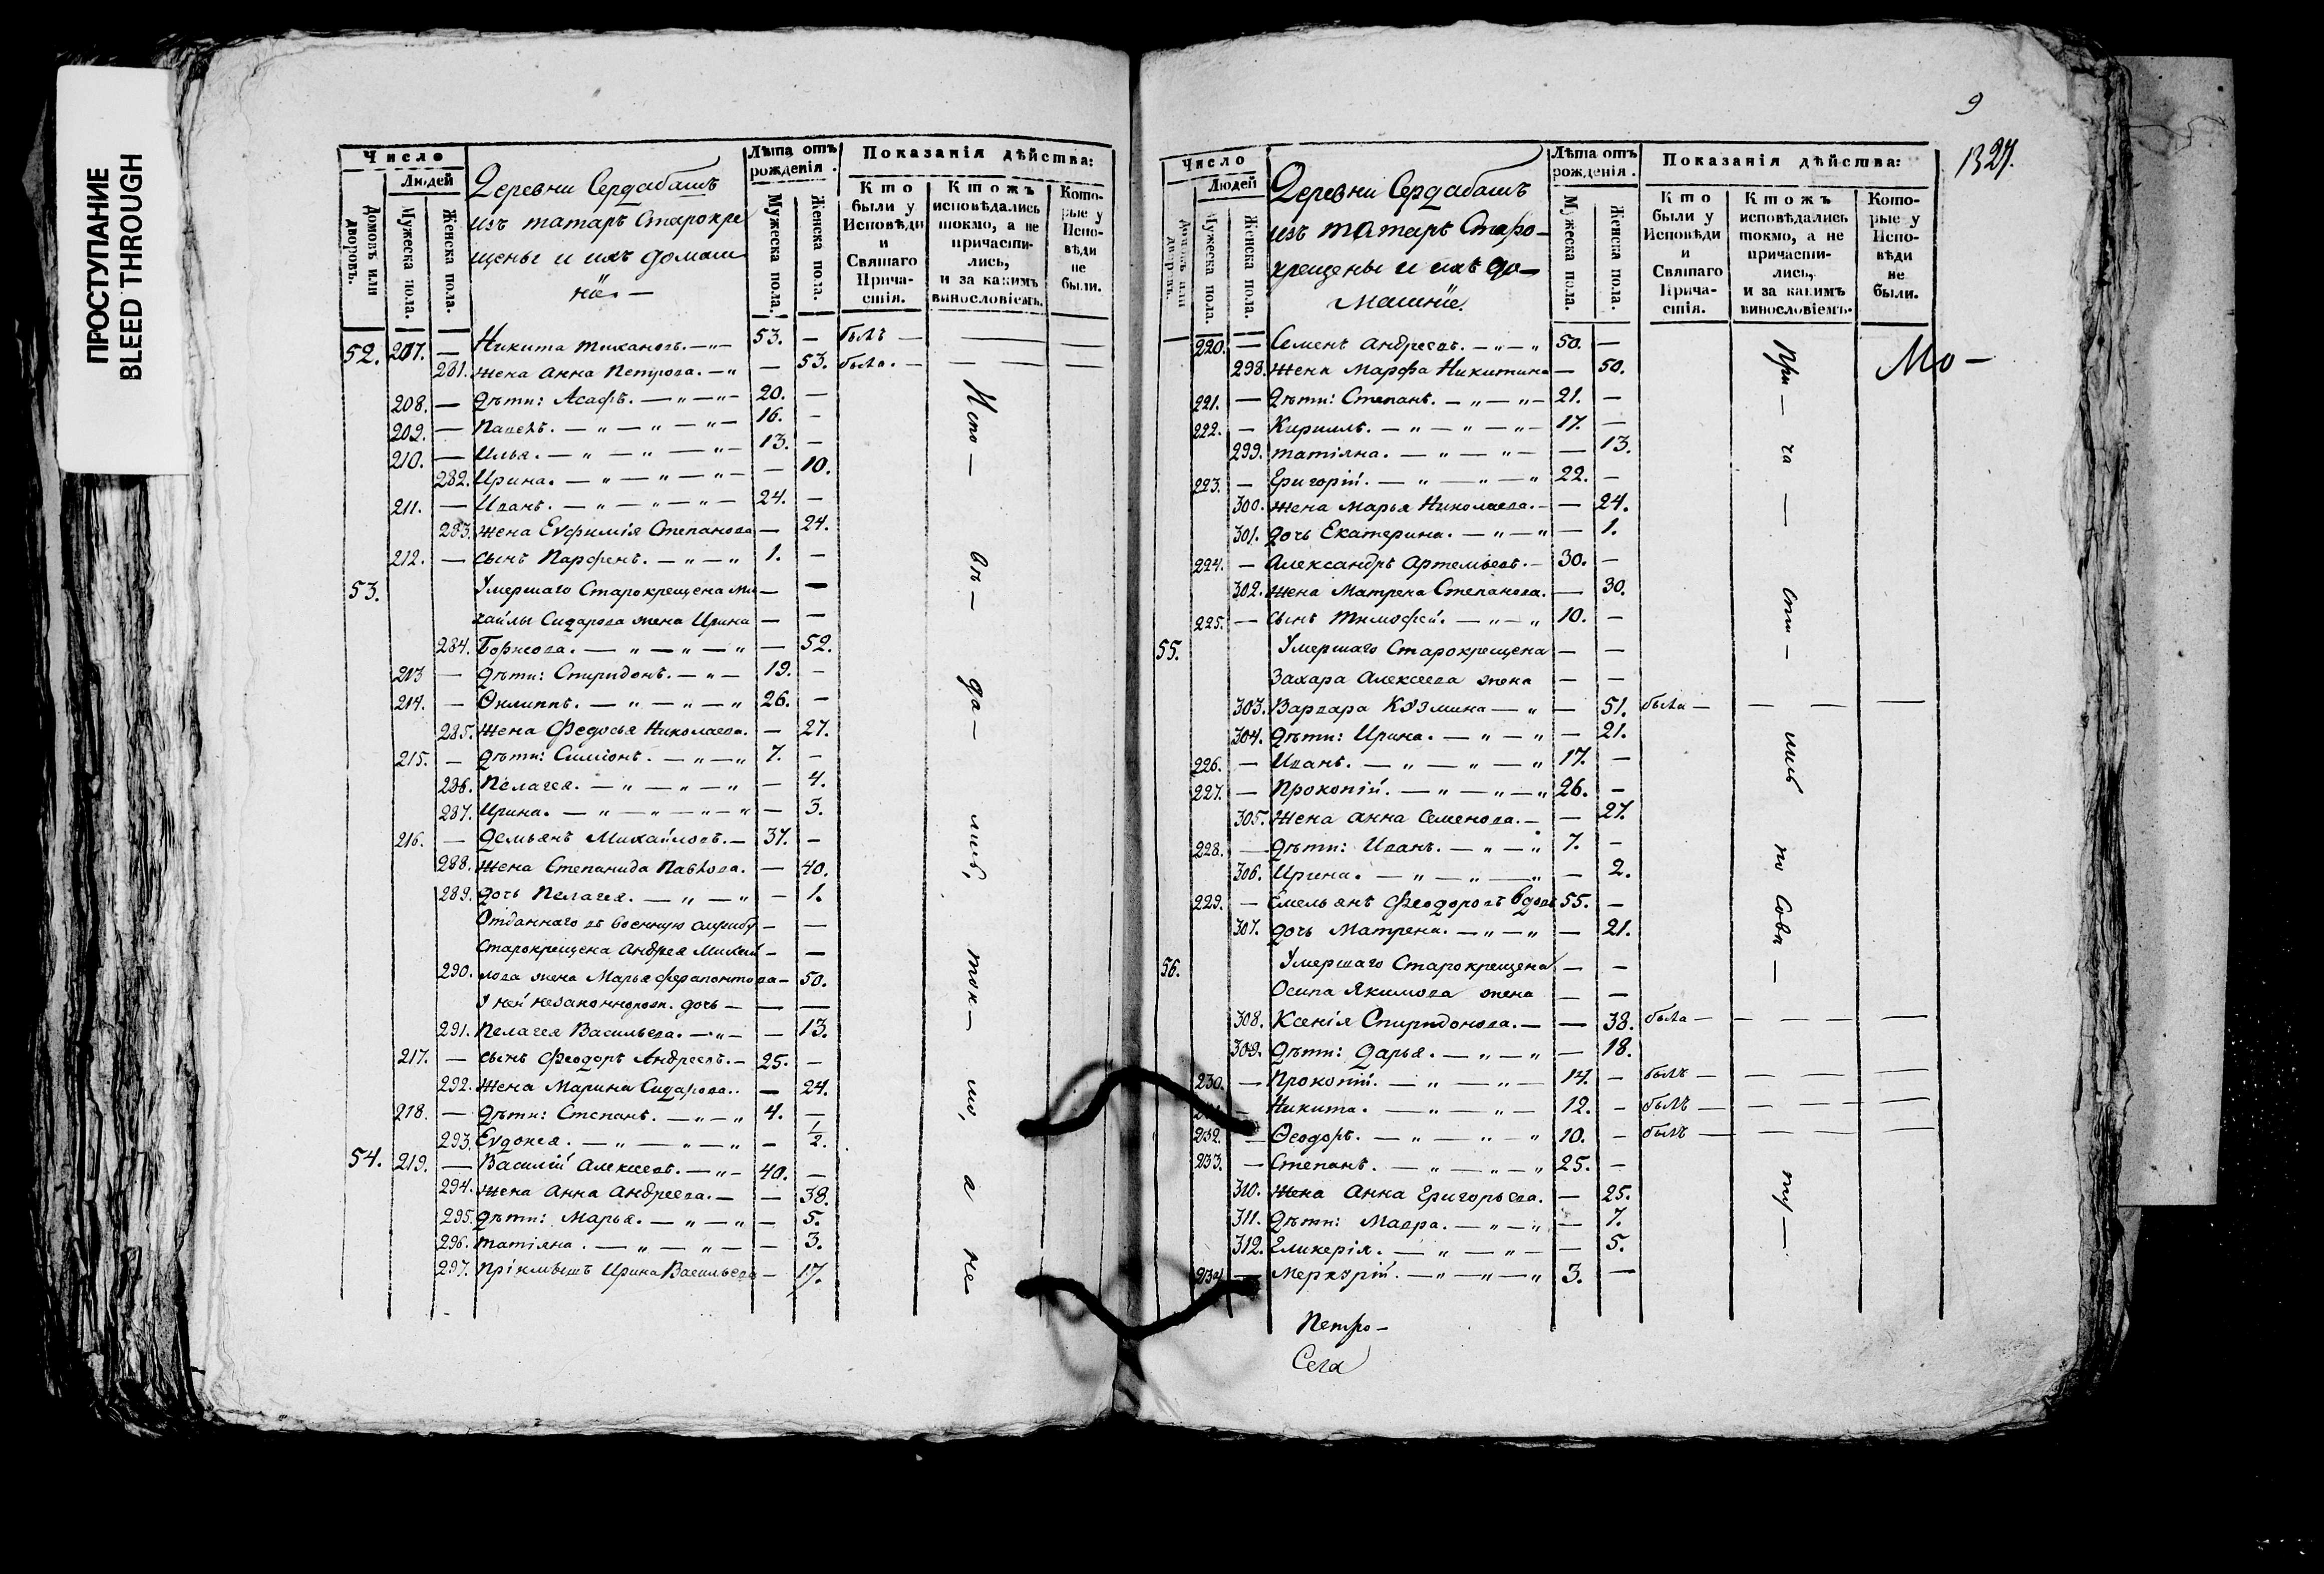 ПРОСТУПАНИЕ
BLEED THROUGH
Число
Людей
Домовъ или дворовъ.
Мужеска пола.
Женска пола.
Деревни Сердабашъ
изъ татаръ Старокре
щены и ихъ домаш
нїе. —
Лѣта отъ рожденія.
Мужеска пола.
Женска пола.
Показанія дѣйства:
Кто были у Исповѣди и Святаго Прича- стія.
Ктожъ исповѣдались токмо, а не причасти- лись, и за какимъ винословіемъ.
Кото- рые у Испо- вѣди не были.
52. 207. — Никита — „ — 53. — былъ — — —
281. жена Анна Петрова. — „ — 53. была. — — —
208. — Дѣти: Асафъ. — „ — „ — 20. —
209. — Павелъ. — „ — „ — „ — 16. —
210. — Илья. — „ — „ — „ — 13. —
282. Ирина. — „ — „ — „ — — 10.
211. — Иванъ. — „ — „ — „ — 24. —
283. жена Евфимія Степанова — 24.
212. — сынъ Парфенъ. — „ — „ 1. —
53. Умершаго Старокрещена Ми — —
хайлы Сидарова жена Ирина — —
284. Борисова. — „ — „ — „ — 52.
213 — Дѣти: Спиридонъ. — „ — 19. —
214. — Филиппъ. — „ — „ — „ 26. —
285. жена Федосья Николаева. — 27.
215. — Дѣти: Симіонъ. — „ — „ 7. —
286. Пелагея. — „ — „ — „ — 4.
287. Ирина. — „ — „ — „ — — 3.
216. — Демьянъ Михайловъ. — 37. —
288. жена Степанида Павлова. — 40.
289. дочь Пелагея. — „ — „ — 1.
Отданнаго въ военную службу — —
Старокрещена Андрея Михай — —
290. лова жена Марья Ферапонтова — 50.
У ней незаконнорожд. дочь — — —
291. Пелагея Васильева. — „ — — 13.
217. — сынъ Феодоръ Андреевъ. — 25. —
292. жена Марина Сидарова. — 24.
218. — Дѣти: Степанъ. — „ — „ 4. —
293. Евдокея. — „ — „ — „ — 1/2.
54. 219. — Василій Алексеевъ. — „ — 40. —
294. жена Анна Андреева. — — 38.
295. Дѣти: Марья. — „ — „ — 5.
296. татіяна. — „ — „ — — 3.
297. Пріемышъ Ирина Васильева — 17.
Испо — вѣ — да — лись, ток — мо, а не
9
1327.
Число
Людей
Домовъ или дворовъ.
Мужеска пола.
Женска пола.
Деревни Сердабашъ
изъ татаръ Старо —
крещены и ихъ до —
машнїе.
Лѣта отъ рожденія.
Мужеска пола.
Женска пола.
Показанія дѣйства:
Кто были у Исповѣди и Святаго Прича- стія.
Ктожъ исповѣдались токмо, а не причасти- лись, и за какимъ винословіемъ.
Кото- рые у Испо- вѣди не были.
220. — Семенъ Андреевъ. — „ — „ 50. —
298. жена Марфа Никитина — 50.
221. — Дѣти: Степанъ. — „ — „ — 21. —
222. — Кириллъ. — „ — „ — „ — 17. —
299. татіяна. — „ — „ — — 13.
223. — Григорій. — „ — „ — „ 22. —
300. жена Марья Николаева. — — 24.
301. дочь Екатерина. — „ — „ — 1.
224. — Александръ Артемьевъ. — 30. —
302. жена Матрена Степанова. — 30.
225. — сынъ Тимофей. — „ — „ 10. —
55. Умершаго Старокрещена — —
Захара Алексеева жена — —
303. Варвара Кузмина — „ — 51. была — — — —
304. Дѣти: Ирина. — „ — „ — 21.
226. — Иванъ. — „ — „ — „ 17. —
227. — Прокопій. — „ — „ — „ 26. —
305. жена Анна Семенова. — — 27.
228. — Дѣти: Иванъ. — „ — „ 7. —
306. Ирина. — „ — „ — „ — 2.
229. — Емельянъ Феодоровъ вдовъ 55. —
307. дочь Матрена. — „ — „ — 21.
56. Умершаго Старокрещена — —
Осипа Якимова жена — —
308. Ксенія Спиридонова. — — 38. была — — — —
309. Дѣти: Дарья. — „ — „ — 18.
230. — Прокопій. — „ — „ — 14. — былъ — — — —
— Никита. — „ — „ — 12. — былъ — — — —
232. — Феодоръ. — „ — „ — „ 10. — былъ — — — —
233. — Степанъ. — „ — „ — „ 25. —
310. жена Анна Григорьева. — 25.
311. Дѣти: Мавра. — „ — „ — 7.
312. Гликерія. — „ — „ — — 5.
234 — Меркурій. — „ — „ — „ 3. —
При — ча — сти — лись по Совѣ — ту —
Мо —
Петро —